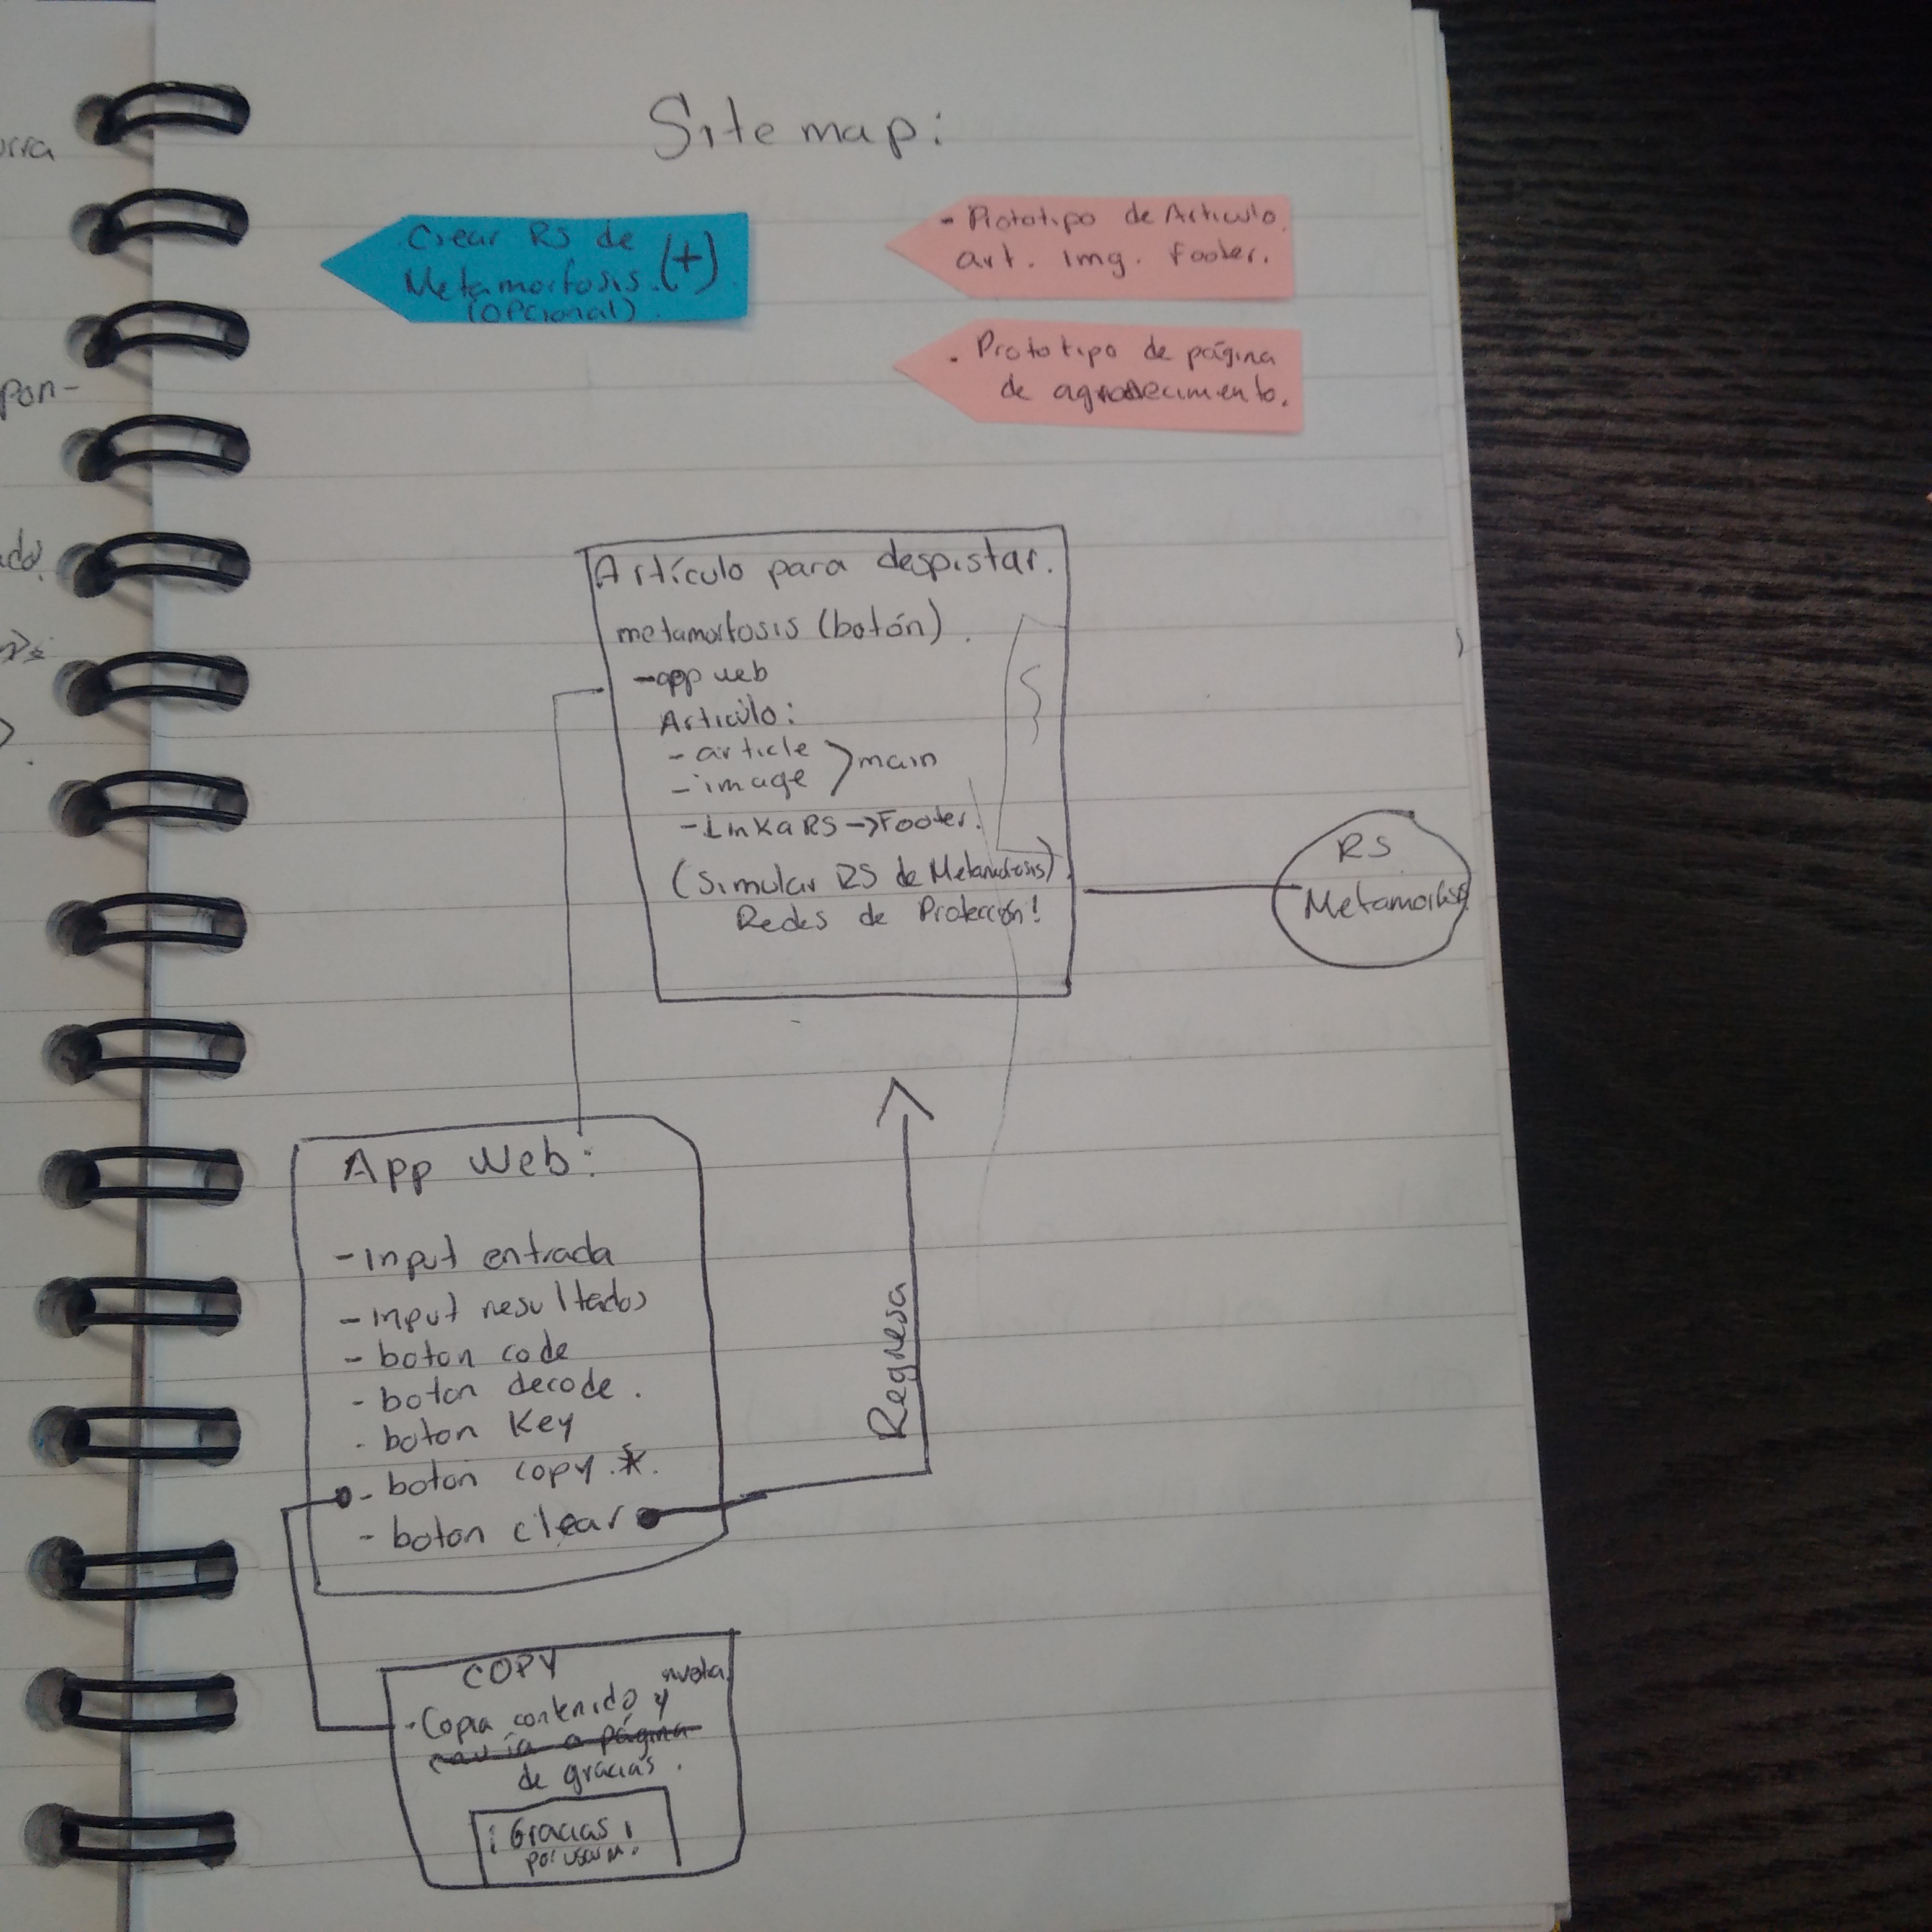 Sitemap:
Crear RS de
Metamorfosis. (+)
(opcional).
- Prototipo de Articulo.
art. img. footer.
. Prototipo de página
de agradecimiento.
Artículo para despistar.
metamorfosis (botón).
- app web
Articulo:
- article
- image } main
- Link a RS → Footer.
(Simular RS de Metamorfosis).
Redes de Protección!
RS
Metamorfosis
App Web:
- Input entrada
- Input resultados
- boton code
- boton decode.
- boton Key
- boton copy.*.
- boton clear
Regresa
COPY
- Copia contenido y
envía a página
de gracias.
¡Gracias!
por usar
urra
pon-
ado.